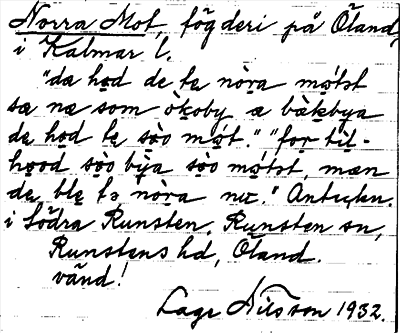 Norra Mot, fögderi på Öland,
i Kalmar l.
"da hod de te nòra mótst
sæ næ som òkoby æ bàkbya
de hod te sòo mót." "for til-
hood sòo bỳa sòo mótst, mæn
de ble tə nòra nu." Anteckn.
i Södra Runsten, Runsten sn,
Runstens hd, Öland.
vänd!
Lage Nilsson 1932.